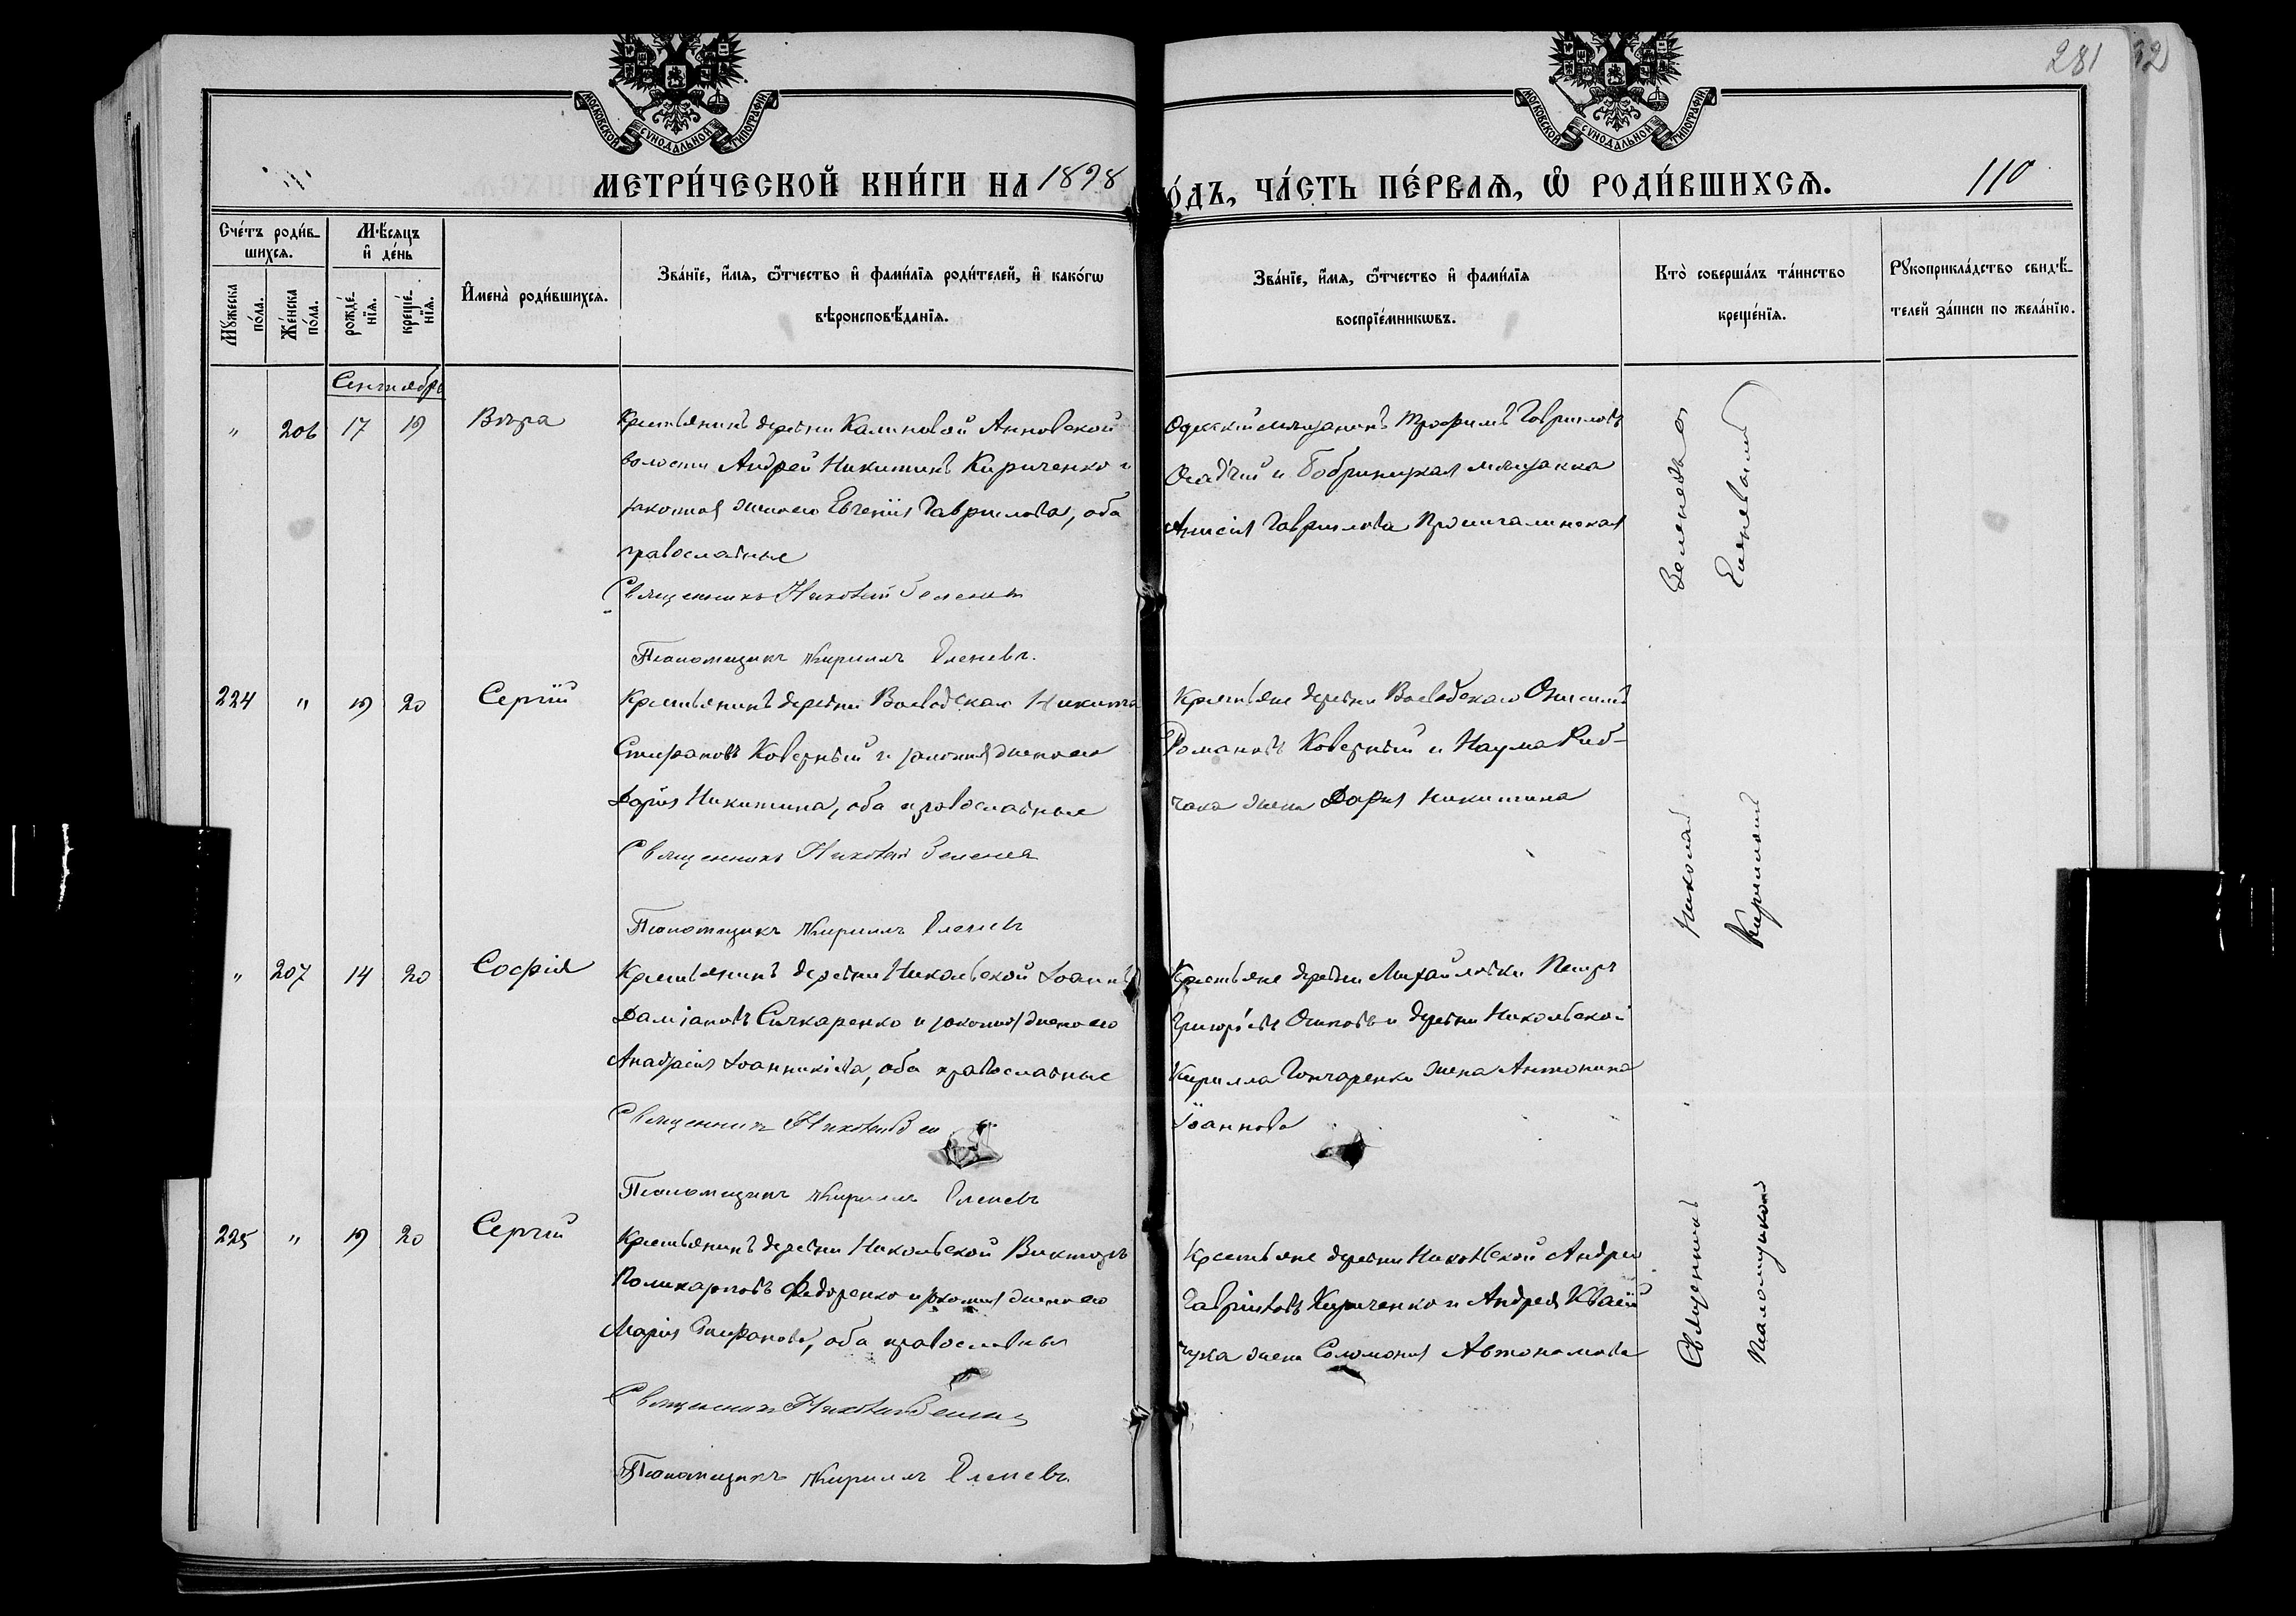 281
МОСКОВСКОЙ СѴНОДАЛЬНОЙ ТИПОГРАФІИ
МОСКОВСКОЙ СѴНОДАЛЬНОЙ ТИПОГРАФІИ
МЕТРИ́ЧЕСКОЙ КНИ́ГИ НА 1898
О́ДЪ, ЧА́СТЬ ПЕ́РВАѦ, Ѡ҆ РОДИ́ВШИХСѦ. 110
Сче́тъ роди́в-
шихсѧ.
Мꙋ́жеска по́ла.
Же́нска по́ла.
Мѣ́сѧцъ
и҆ де́нь
рожде́-нїѧ.
креще́-нїѧ.
И҆мена̀ роди́вшихсѧ.
Зва́нїе, и҆́мѧ, ѻ҆́тчество и҆ фами́лїѧ роди́телей, и҆ како́гѡ
вѣроисповѣ́данїѧ.
Зва́нїе, и҆́мѧ, ѻ҆́тчество и҆ фами́лїѧ
воспрїе́мникѡвъ.
Кто̀ соверша́лъ та́инство
креще́нїѧ.
Рꙋкоприкла́дство свидѣ́-
телей за́писи по жела́нїю.
Сентябрь
" 206 17 19 Вѣра
Крестьянинъ деревни Калиновой Анновской
волости Андрей Никитинъ Кириченко и
законная жена его Евгенія Гаврилова, оба
православные
Священникъ Николай Зеленевъ
Псаломщикъ Кириллъ Еленевъ.
Одесскій мѣщанинъ Трофимъ Гавриловъ
Осадчій и Бобринецкая мѣщанка
Анисія Гаврилова
224 " 19 20 Сергій
Крестьянинъ деревни Воеводская Никита
Стефановъ Коверный и законная жена его
Дарія Никитина, оба православные
Священникъ Николай
Псаломщикъ Кириллъ Еленевъ
Крестьяне деревни Воеводской Онисимъ
Романовъ Коверный и Наума Риб-
чака жена Дарія Никитина
" 207 14 20 Софія
Крестьянинъ деревни Никольской Іоаннъ
Даміановъ Сичкаренко и законная жена его
Анастасія Іоанникіева, оба православные
Священникъ Николай
Псаломщикъ Кириллъ Еленевъ
Крестьяне деревни Михайловки Петръ
Григорьевъ Осиповъ и деревни Никольской
Кирилла Гончаренко жена Антонина
Іоаннова
225 " 19 20 Сергій
Крестьянинъ деревни Никольской Викторъ
Поликарповъ Федоренко и законная жена его
Марія Стефанова, оба православные
Священникъ Николай
Псаломщикъ Кириллъ Еленевъ.
Крестьяне деревни Никольской Андрей
Гавріиловъ Кириченко и Андрея
жена Соломонія Автономова
Священникъ Николай
Псаломщикъ Кириллъ Еленевъ